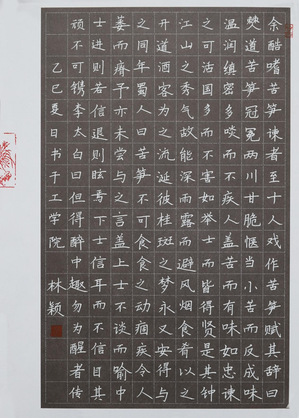 余酷嗜苦笋谏者至十人戏作苦笋赋其辞曰
僰道苦笋冠冕两川甘脆惬当小苦而反成味
温润缜密多啖而不疾人盖苦而有味如忠谏
之可活国多而不害如举士而皆得贤是其钟
江山之秀气故能深雨露而避风烟食肴以之
开道酒客为之流涎彼桂斑之梦永又安得与
之同年蜀人曰苦笋不可食食之动痼疾令人
萎而瘠予亦未尝与之言盖上士不谈而喻中
士进则若信退则眩焉下士信耳而不信目其
顽不可镌李太白曰但得醉中趣勿为醒者传
乙巳夏日书于工学院 林颖